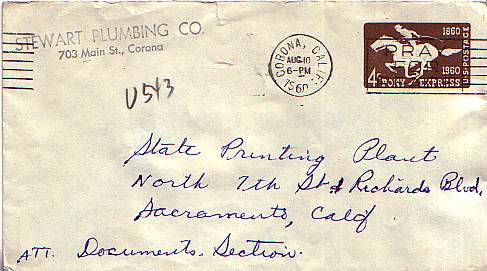 STEWART PLUMBING CO.
703 Main St., Corona
CORONA, CALIF.
AUG 10
6-PM
1960
PRA
1860
1960
4¢
PONY EXPRESS
U.S. POSTAGE
U543
State Printing Plant
North 7th St & Richards Blvd,
Sacramento, Calif
ATT. Documents. Section.